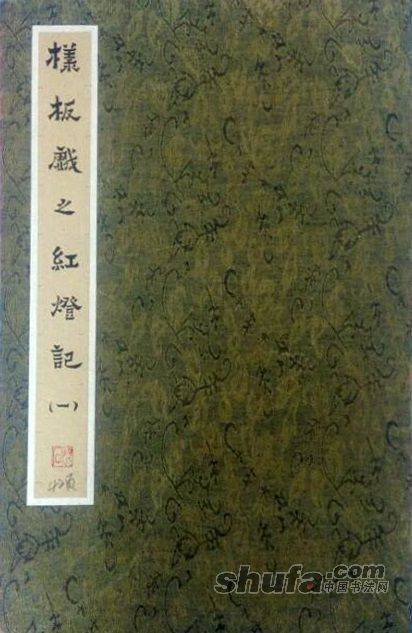 樣板戲之紅燈記(一)
shufa.com
中国书法网